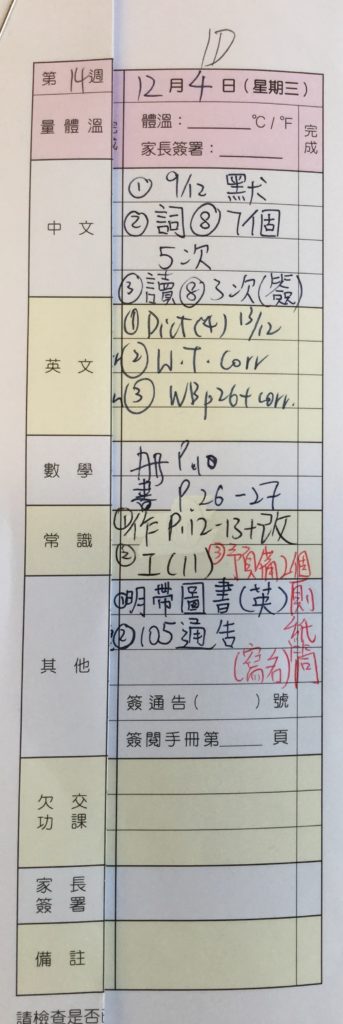 1D
第14週
12月4日(星期三)
量體溫
體溫：______℃/℉
家長簽署：______
完成
中文
① 9/12 默
② 詞⑧ 7個
5次
③ 讀⑧ 3次(簽)
英文
① Dict(4) 13/12
② W.T. corr
③ WB p26+corr.
數學
冊 P.10
書 P.26-27
常識
① 作 P.12-13+改
② I(11) ③預備2個
其他
①明帶圖書(英) 廁
②105通告 紙
(寫名) 筒
簽通告( )號
簽閱手冊第____頁
欠交功課
家長簽署
備註
請檢查是否已